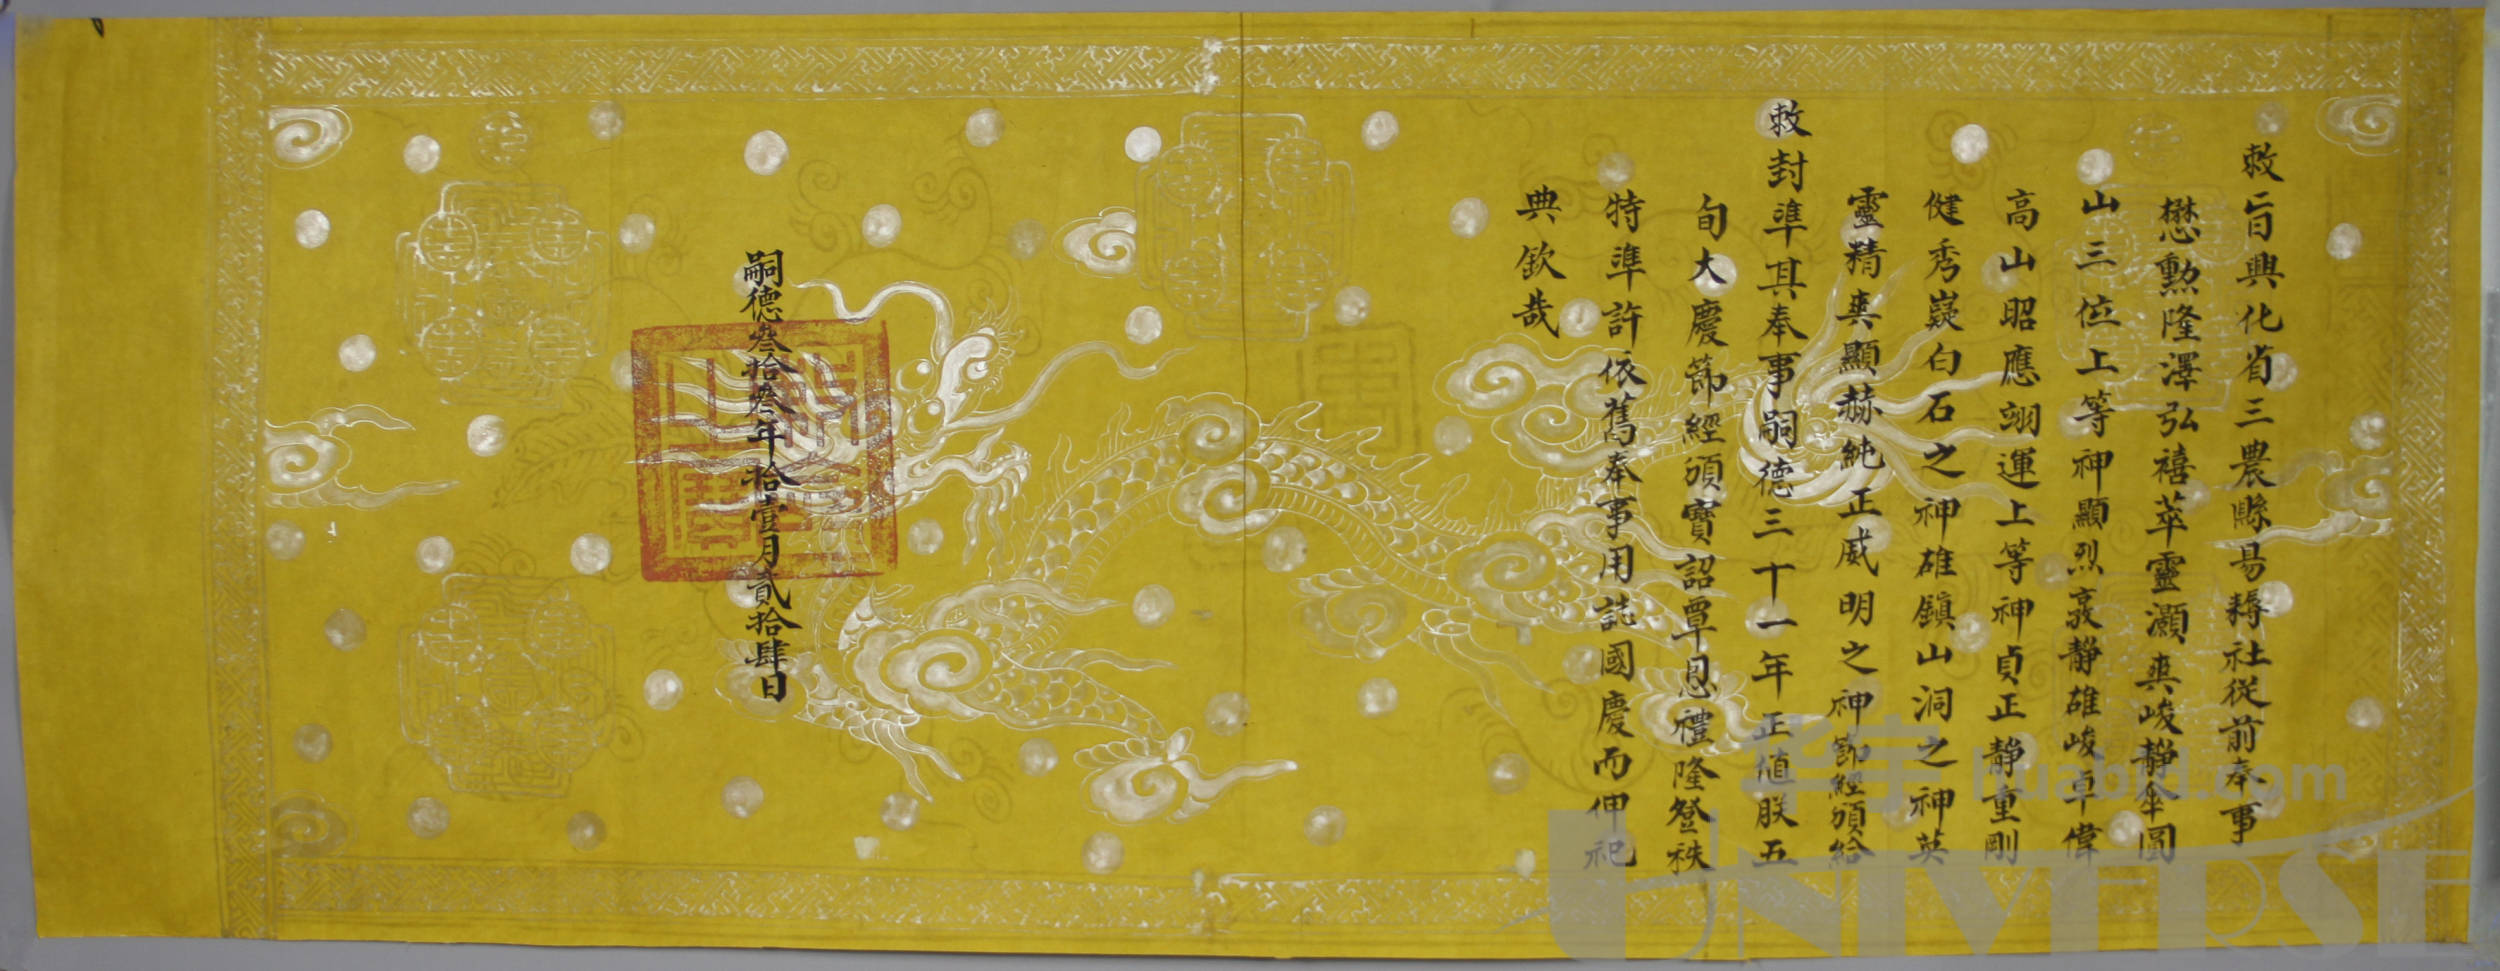 敕旨興化省三農縣易耨社從前奉事
懋勲隆澤弘禧萃靈灝爽峻靜傘圓
山三位上等神顯烈嘉靜雄峻卓偉
高山昭應翊運上等神貞正靜重剛
健秀嶷白石之神雄鎮山洞之神英
靈精爽顯赫純正威明之神節經頒給
敕封準其奉事嗣德三十一年正值朕五
旬大慶節經頒寶詔覃恩禮隆登秩
特準許依舊奉事用誌國慶而伸祀
典欽哉
嗣德叁拾叁年拾壹月貳拾肆日
华宇 huabid.com
UNIVERSE